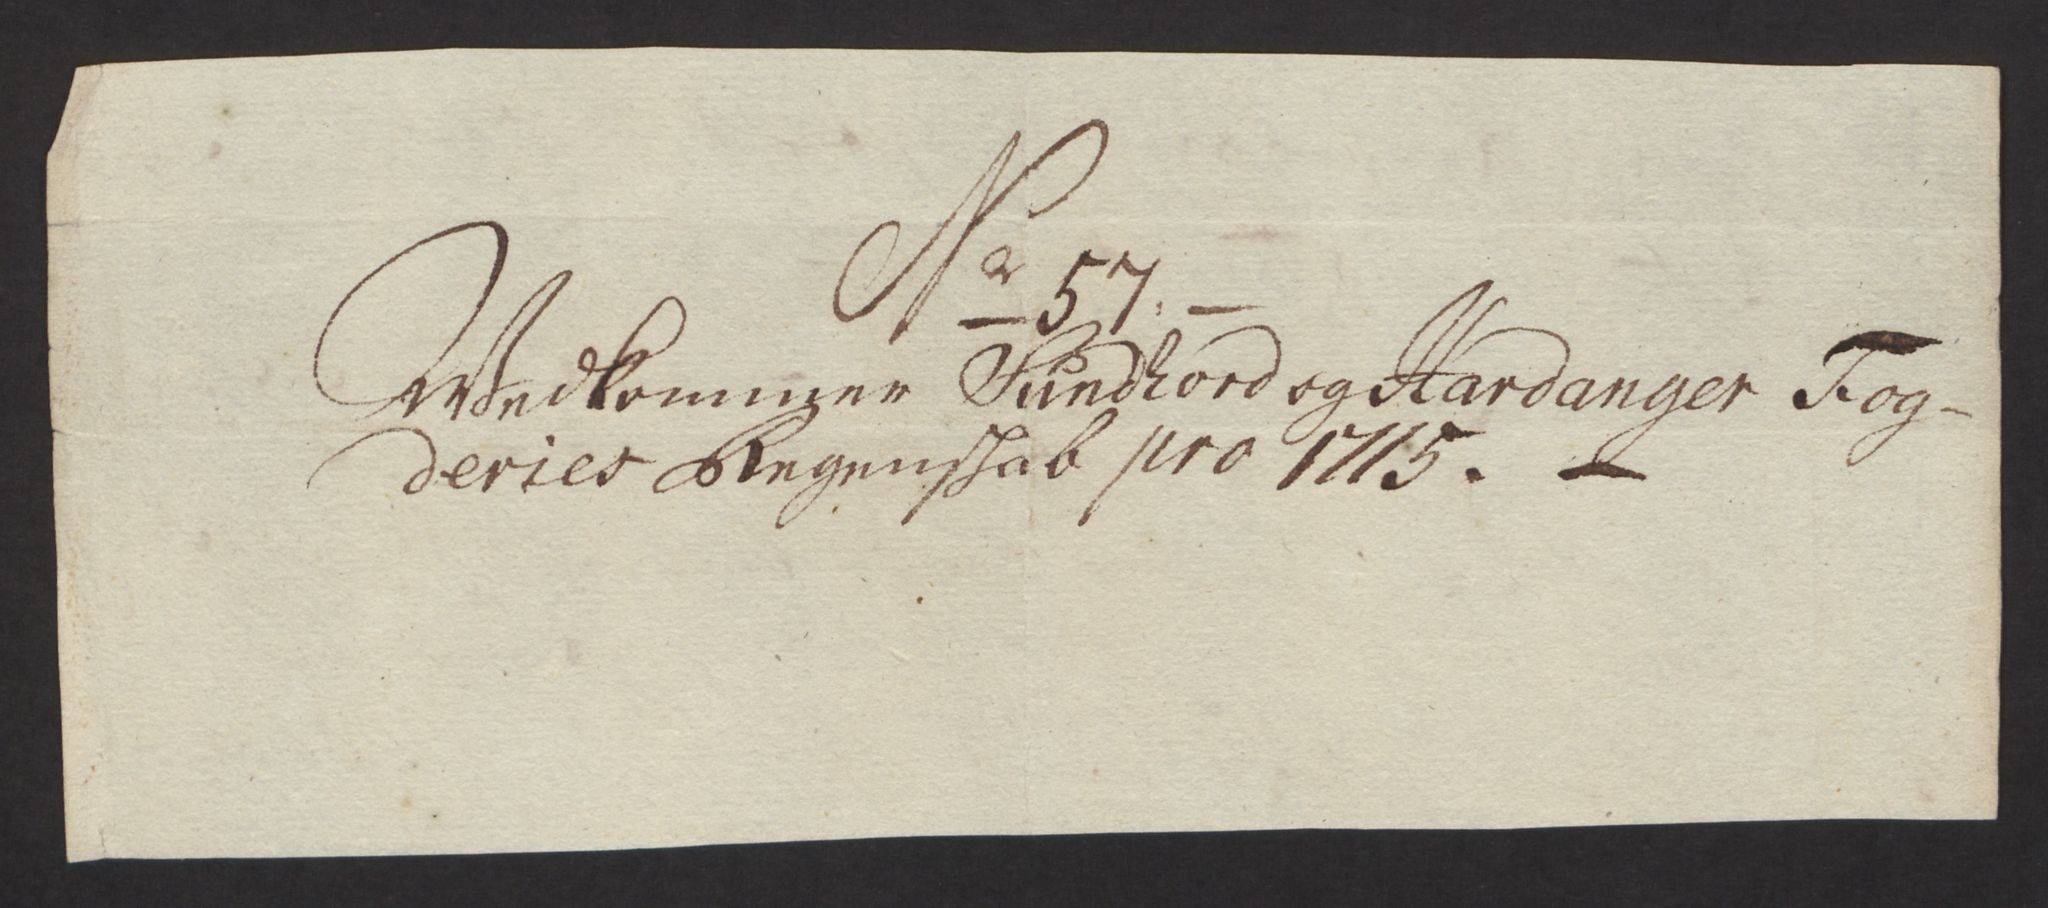 No 57. —
Vedkommer Sundhord og Hardanger Fog-
deries Regenskab pro 1715. —